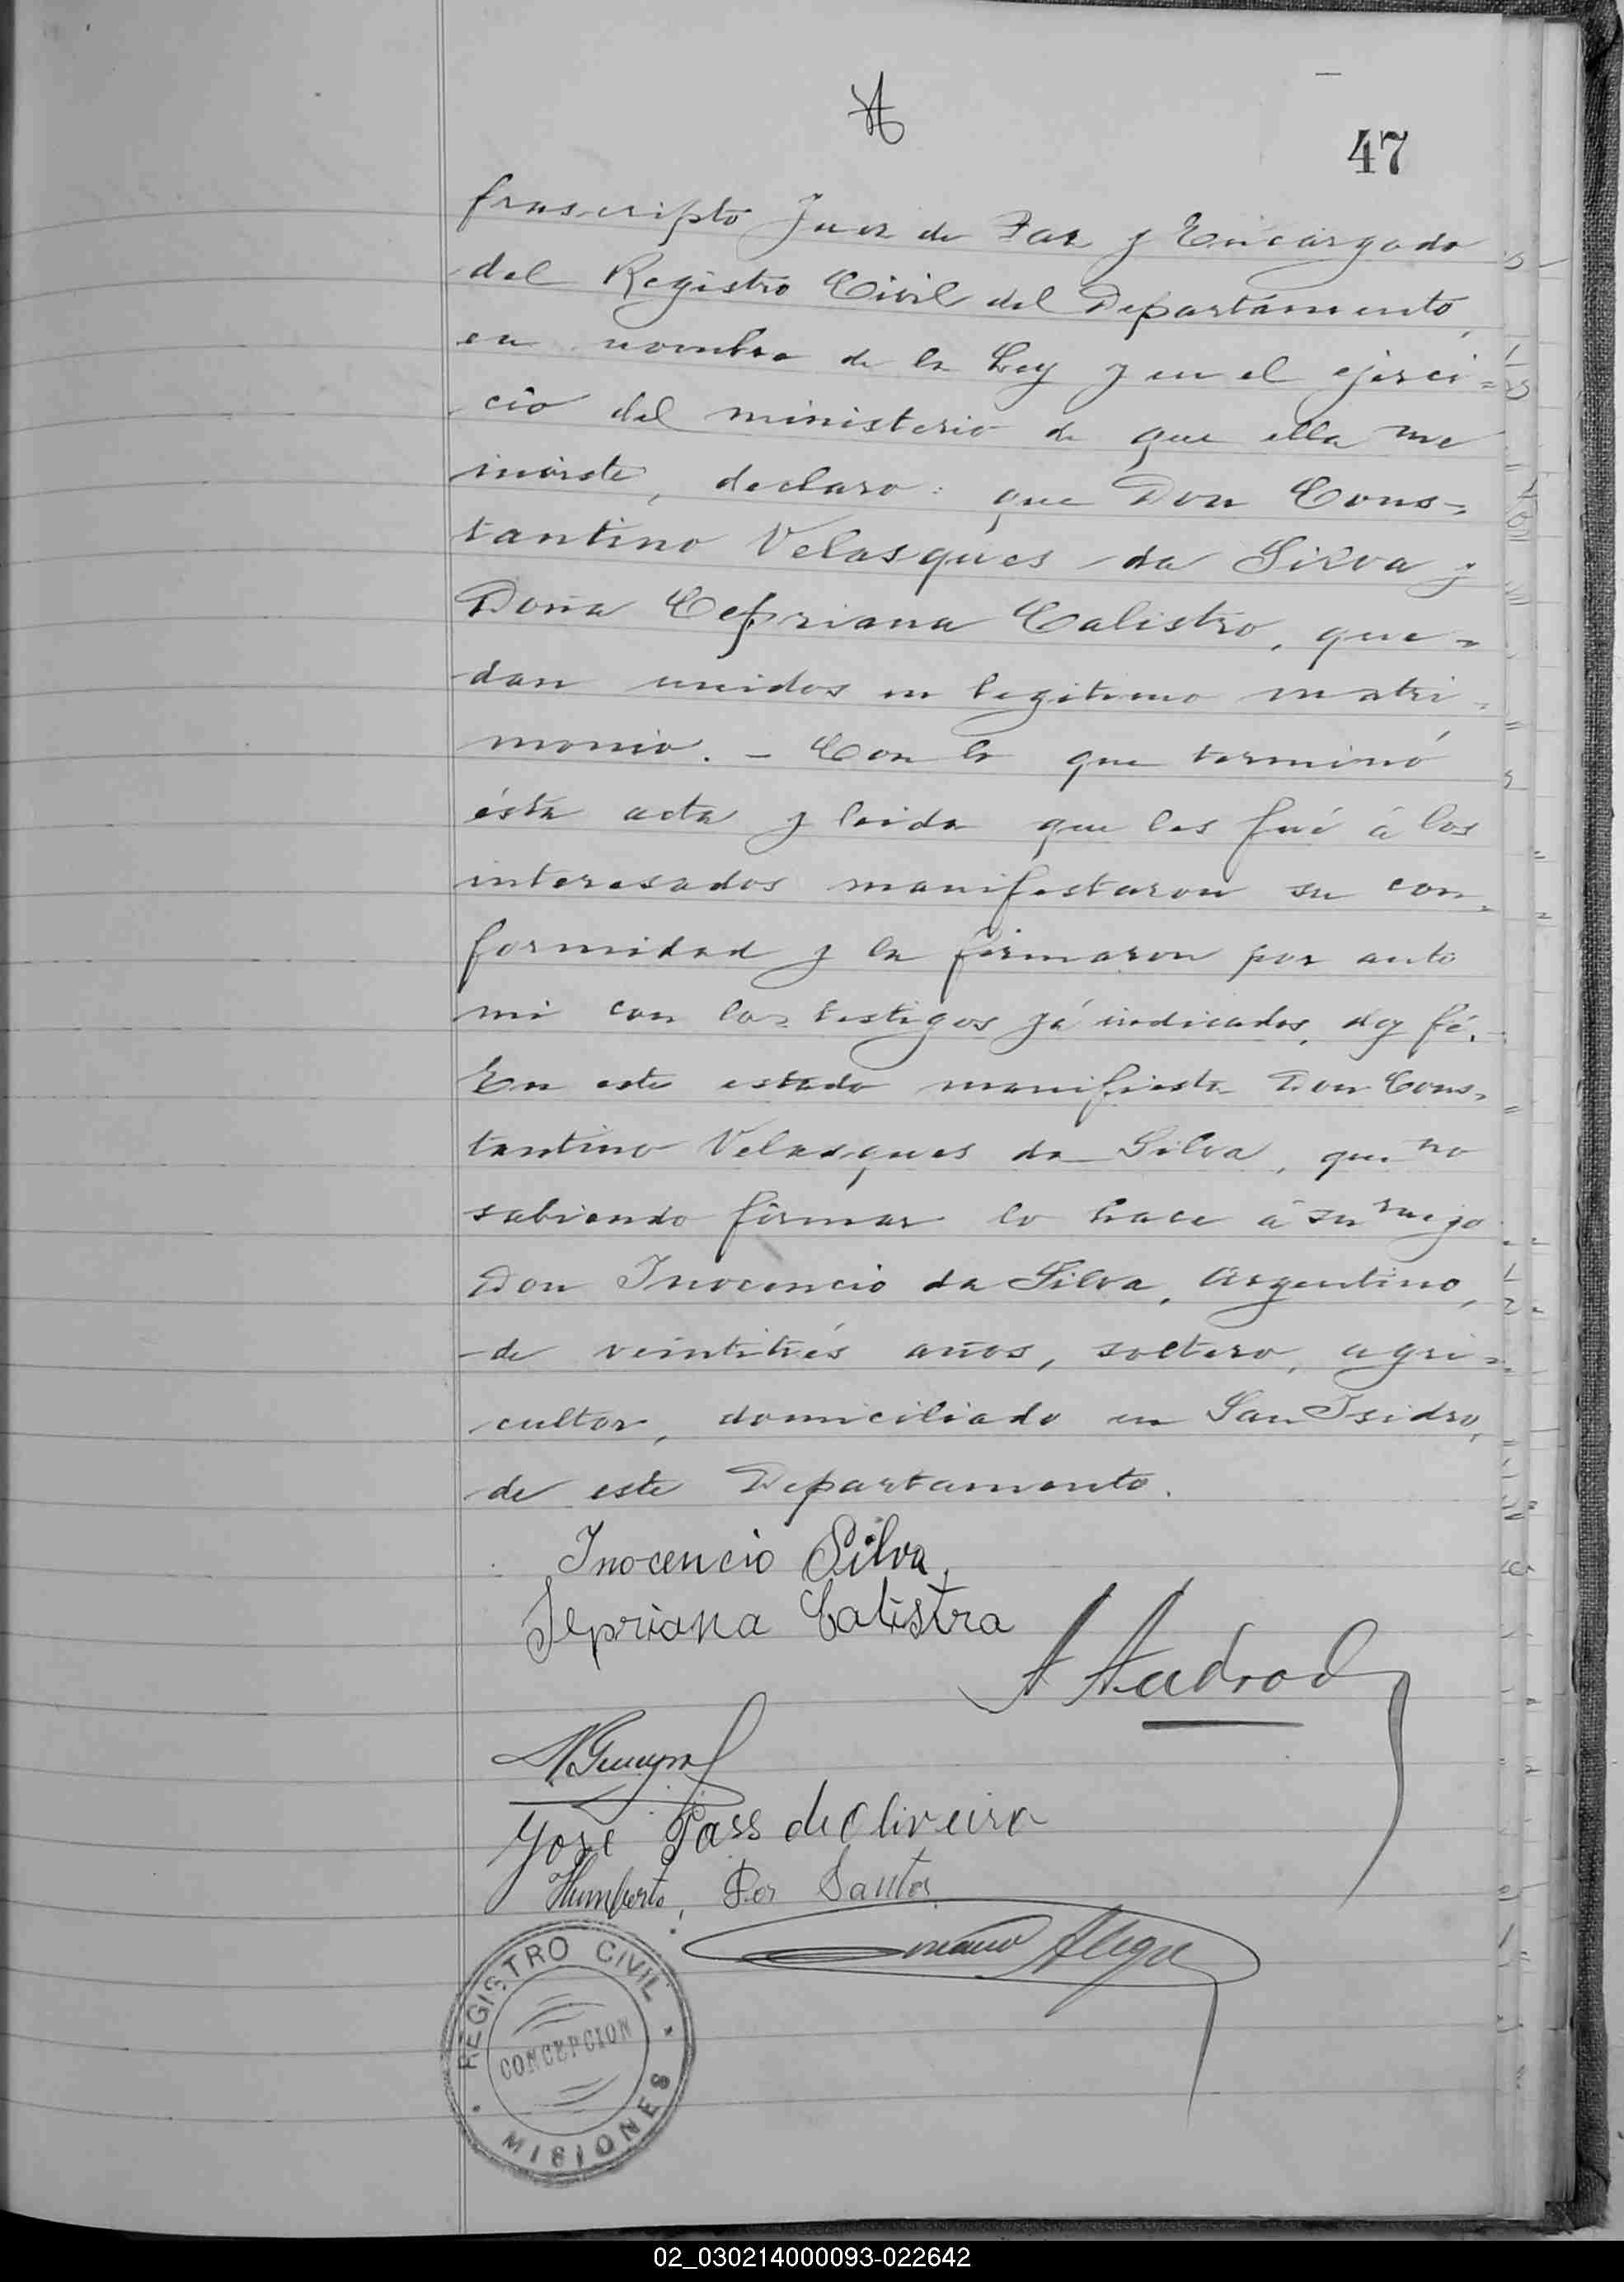 47
frascripto Juez de Paz y Encargado
del Registro Civil del Departamento,
en nombre de la Ley y en el ejerci=
cio del ministerio de que ella me
inviste, declaro: que Don Cons=
tantino Velasques da Silva y
Doña Cepriana Calistro, que=
dan unidos en legitimo matri=
monio. - Con lo que terminó
ésta acta y leida que les fué á los
interesados manifestaron su con=
formidad y la firmaron por ante
mi con los testigos yá indicados, doy fé. -
En este estado manifiesta Don Cons=
tantino Velasques da Silva, que no
sabiendo firmar lo hace á su ruego
Don Inocencio da Silva, Argentino,
de veintitrés años, soltero, agri=
cultor, domiciliado en San Isidro,
de este Departamento.
Inocencio Silva
Sepriana Calistra
A Andrad
José Pass de Oliveira
Humberto Dos Santos
Alegre
REGISTRO CIVIL
CONCEPCION
MISIONES
02_030214000093-022642